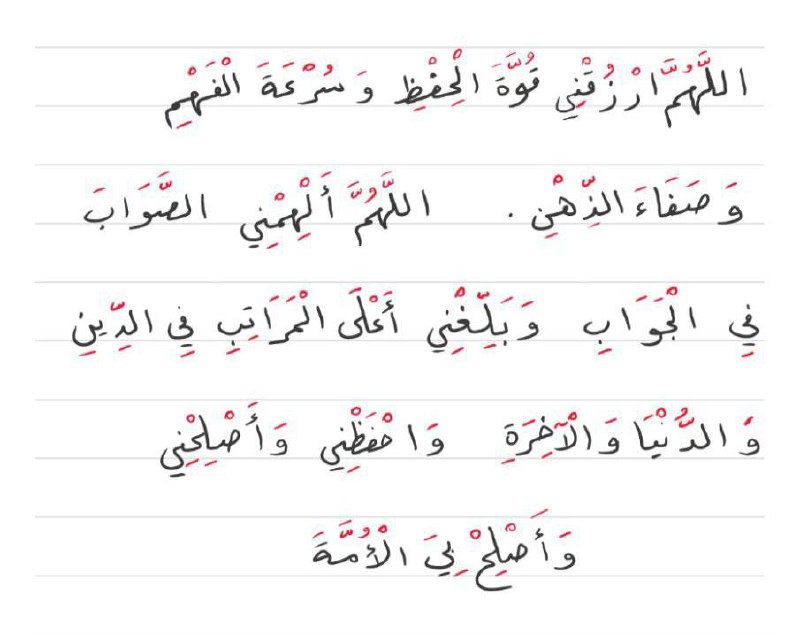 اللَّهُمَّ ارْزُقْنِي قُوَّةَ الْحِفْظِ وَ سُرْعَةَ الْفَهْمِ
وَ صَفَاءَ الذِّهْنِ . اللَّهُمَّ أَلْهِمْنِي الصَّوَابَ
فِي الْجَوَابِ وَ بَلِّغْنِي أَعْلَى الْمَرَاتِبِ فِي الدِّينِ
وَ الدُّنْيَا وَ الْآخِرَةِ وَ احْفَظْنِي وَ أَصْلِحْنِي
وَ أَصْلِحْ بِيَ الْأُمَّةَ